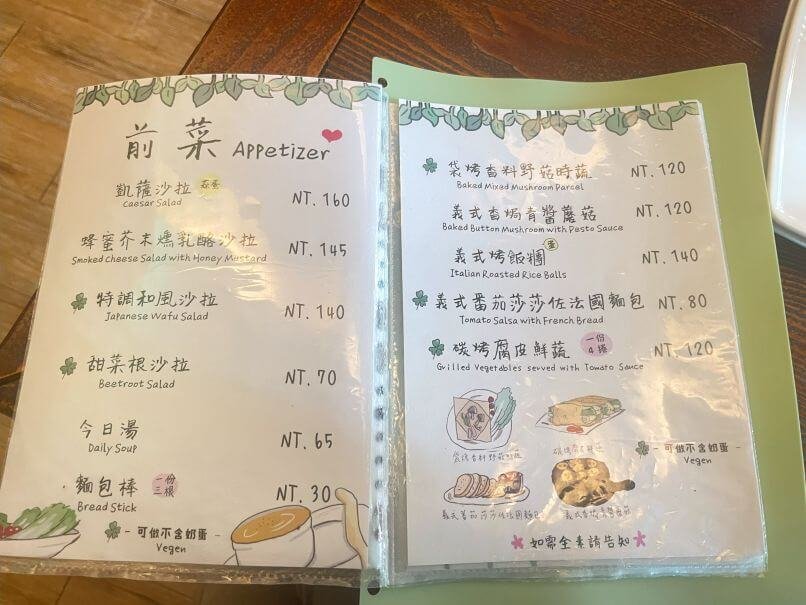 前菜 Appetizer
凱薩沙拉
Caesar Salad
NT. 160
蜂蜜芥末燻乳酪沙拉
Smoked Cheese Salad with Honey Mustard
NT. 145
特調和風沙拉
Japanese Wafu Salad
NT. 140
甜菜根沙拉
Beetroot Salad
NT. 70
今日湯
Daily Soup
NT. 65
麵包棒 一份三根
Bread Stick
NT. 30
- 可做不含奶蛋 -
Vegen
袋烤香料野菇時蔬 NT. 120
Baked Mixed Mushroom Parcel
義式香焗青醬蘑菇 NT. 120
Baked Button Mushroom with Pesto Sauce
義式烤飯糰 蛋 NT. 140
Italian Roasted Rice Balls
義式番茄莎莎佐法國麵包 NT. 80
Tomato Salsa with French Bread
碳烤腐皮鮮蔬 一份4捲 NT. 120
Grilled Vegetables served with Tomato Sauce
- 可做不含奶蛋 -
Vegen
義式番茄莎莎佐法國麵包
如需全素請告知